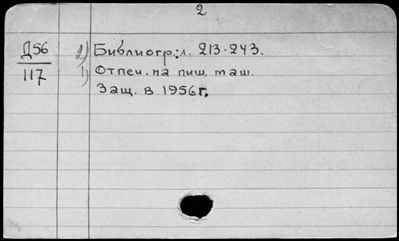 2
Д56
117
2) Библиогр: л. 213-243.
1) Отпеч. на пиш. таш.
Защ. в 1956г.